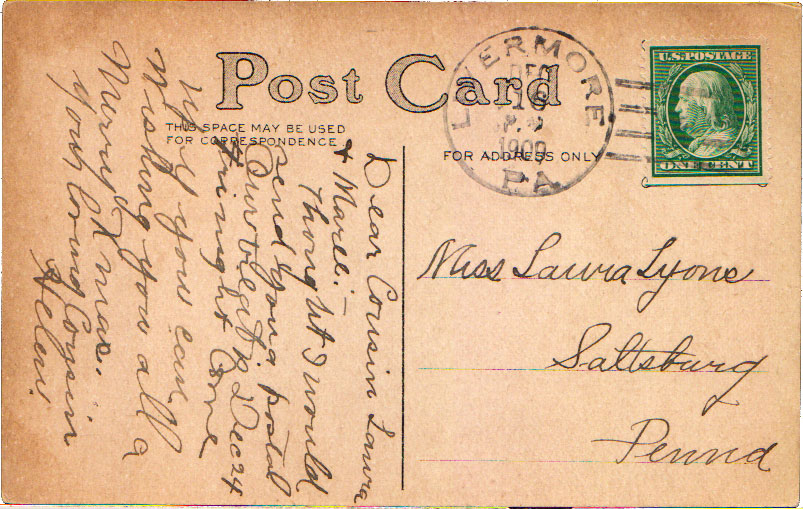 Post Card
THIS SPACE MAY BE USED
FOR CORRESPONDENCE
FOR ADDRESS ONLY
LIVERMORE
DEC
16
1909
PA.
U.S. POSTAGE
ONE CENT
Miss Laura Lyons
Saltsburg
Penna
Dear Cousin Laura
& :-
Thought I would
send you a postal
Our treat is Dec 24
night Come
you can
Wishing you all a
Merry X mas..
Your loving Cousin
Helen